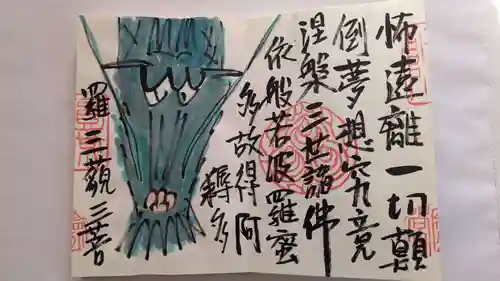 怖遠離一切顛
倒夢想究竟
涅槃三世諸佛
依般若波羅蜜
多故得阿
耨多
羅三藐三菩